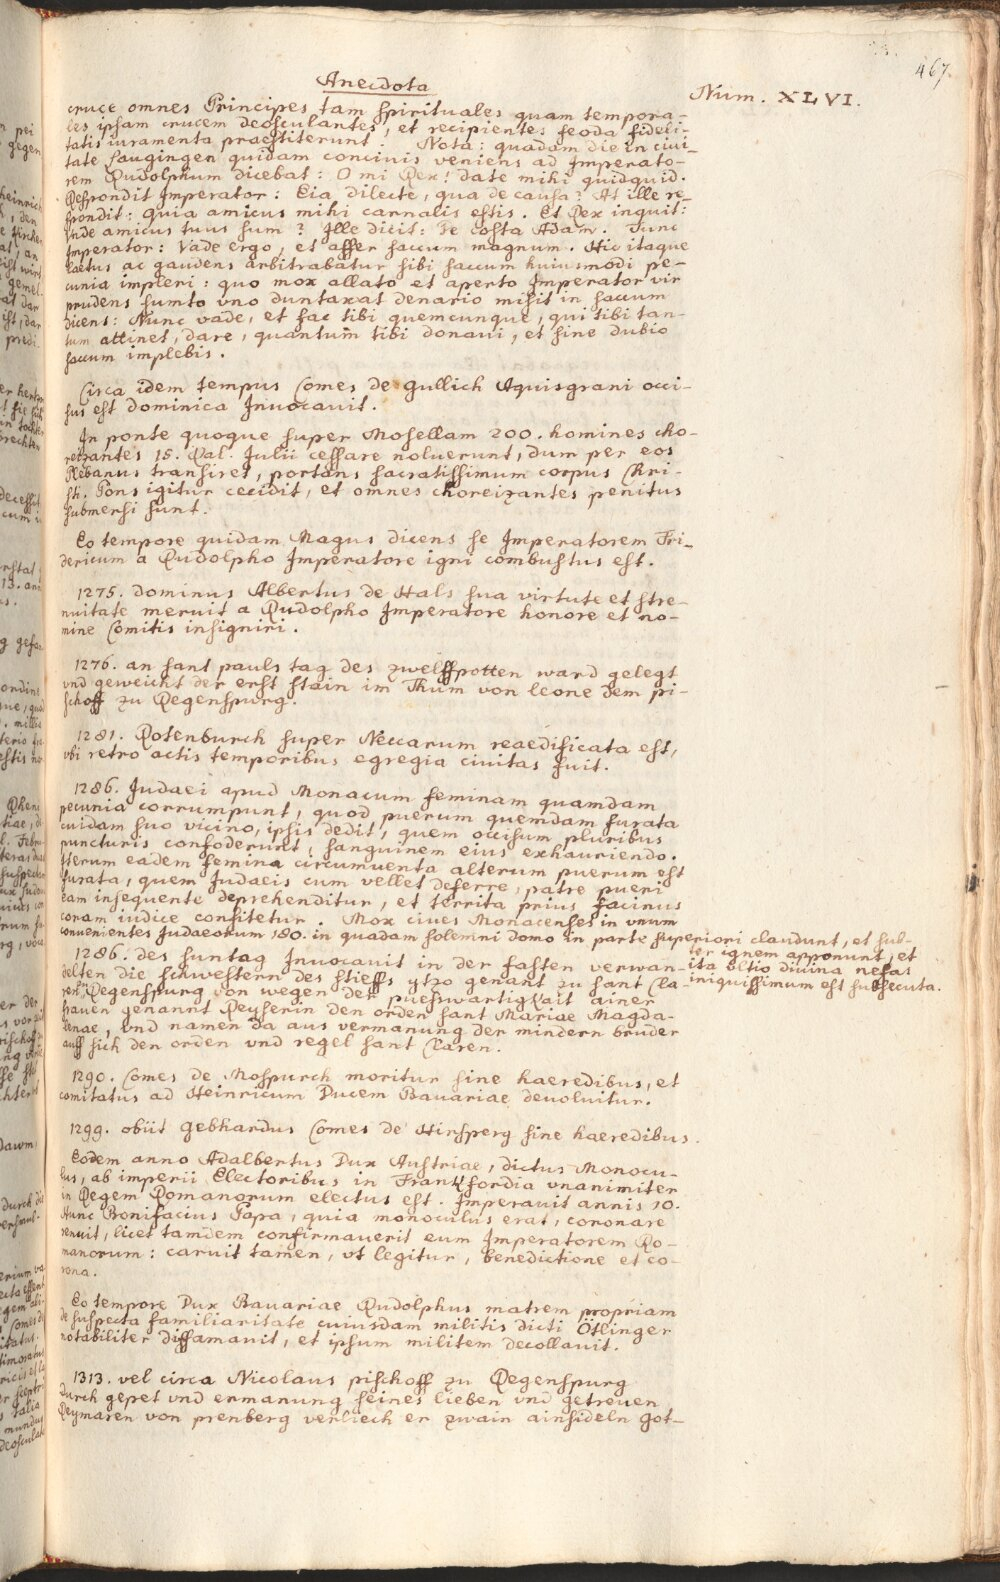 467.
Anecdota
Num. XLVI.
cruce omnes Principes tam spirituales quam tempora-
les ipsam crucem deosculantes, et recipientes feoda fideli-
tatis iuramenta praestiterunt. Nota: quadam die in ciui-
tate Laugingen quidam conciuis veniens ad Imperato-
rem Rudolphum dicebat: O mi Rex! date mihi quidquid.
Respondit Imperator: Eia dilecte, qua de causa? At ille re-
spondit: quia amicus mihi carnalis estis. Et Rex inquit:
Vnde amicus tuus sum? Ille dicit: De costa Adam. Tunc
Imperator: Vade ergo, et affer saccum magnum. Hic itaque
laetus ac gaudens arbitrabatur sibi saccum huiusmodi pe-
cunia impleri: quo mox allato et aperto Imperator vir
prudens sumto vno duntaxat denario misit in saccum
dicens: Nunc vade, et fac tibi quemcunque, qui tibi tan-
tum attinet, dare, quantum tibi donaui, et sine dubio
saccum implebis.
Circa idem tempus Comes de gullich Aquisgrani occi-
sus est dominica Inuocauit.
In ponte quoque super Mosellam 200. homines cho-
reizantes 15. Kal. Julii cessare noluerunt, dum per eos
Plebanus transiret, portans sacratissimum corpus Chri-
sti. Pons igitur cecidit, et omnes choreizantes penitus
submersi sunt.
Eo tempore quidam Magus dicens se Imperatorem Fri-
dericum a Rudolpho Imperatore igni combustus est.
1275. dominus Albertus de Hals sua virtute et stre-
nuitate meruit a Rudolpho Imperatore honore et no-
mine Comitis insigniri.
1276. an sant pauls tag des zwelffpotten ward gelegt
vnd geweicht der erst stain im Thum von leone dem pi-
schoff zu Regenspurg.
1281. Rotenburch super Neccarum reaedificata est,
vbi retro actis temporibus egregia ciuitas fuit.
1286. Judaei apud Monacum feminam quamdam
pecunia corrumpunt, quod puerum quemdam furata
cuidam suo vicino, ipsis dedit, quem occisum pluribus
puncturis confoderunt, sanguinem eius exhauriendo.
Iterum eadem femina circumuenta alterum puerum est
furata, quem Judaeis cum vellet deferre, patre pueri
eam insequente deprehenditur, et territa prius facinus
coram iudice confitetur. Mox ciues Monacenses in vnum
conuenientes Judaeorum 180. in quadam solemni domo in parte superiori claudunt, et sub-
ter ignem apponunt, et
ita vltio diuina nefas
iniquissimum est subsecuta.
1286. des suntag Inuocauit in der fasten verwan-
delten die schwestern des stieffs ytzo genant zu sant Cla-
ren Regenspurg von wegen der pueswartigkait ainer
frauen genannt Reyserin den orden sant Mariae Magda-
lenae, vnd namen da aus vermanung der mindern bruder
auff sich den orden vnd regel sant Claren.
1290. Comes de Mospurch moritur sine haeredibus, et
comitatus ad Heinricum Ducem Bauariae deuoluitur.
1299. obiit gebhardus Comes de Hirsperg sine haeredibus.
Eodem anno Adalbertus Dux Austriae, dictus Monocu-
lus, ab imperii Electoribus in Frankfordia vnanimiter
in Regem Romanorum electus est. Imperauit annis 10.
Hunc Bonifacius Papa, quia monoculus erat, coronare
renuit, licet tamdem confirmauerit eum Imperatorem Ro-
manorum: caruit tamen, vt legitur, benedictione et co-
rona.
Eo tempore Dux Bauariae Rudolphus matrem propriam
de suspecta familiaritate cuiusdam militis dicti Ötlinger
notabiliter diffamauit, et ipsum militem decollauit.
1313. vel circa Nicolaus pischoff zu Regenspurg
durch gepet vnd ermanung seines lieben vnd getreuen
Reymaren von prenberg verliech er zwain ainsideln got-